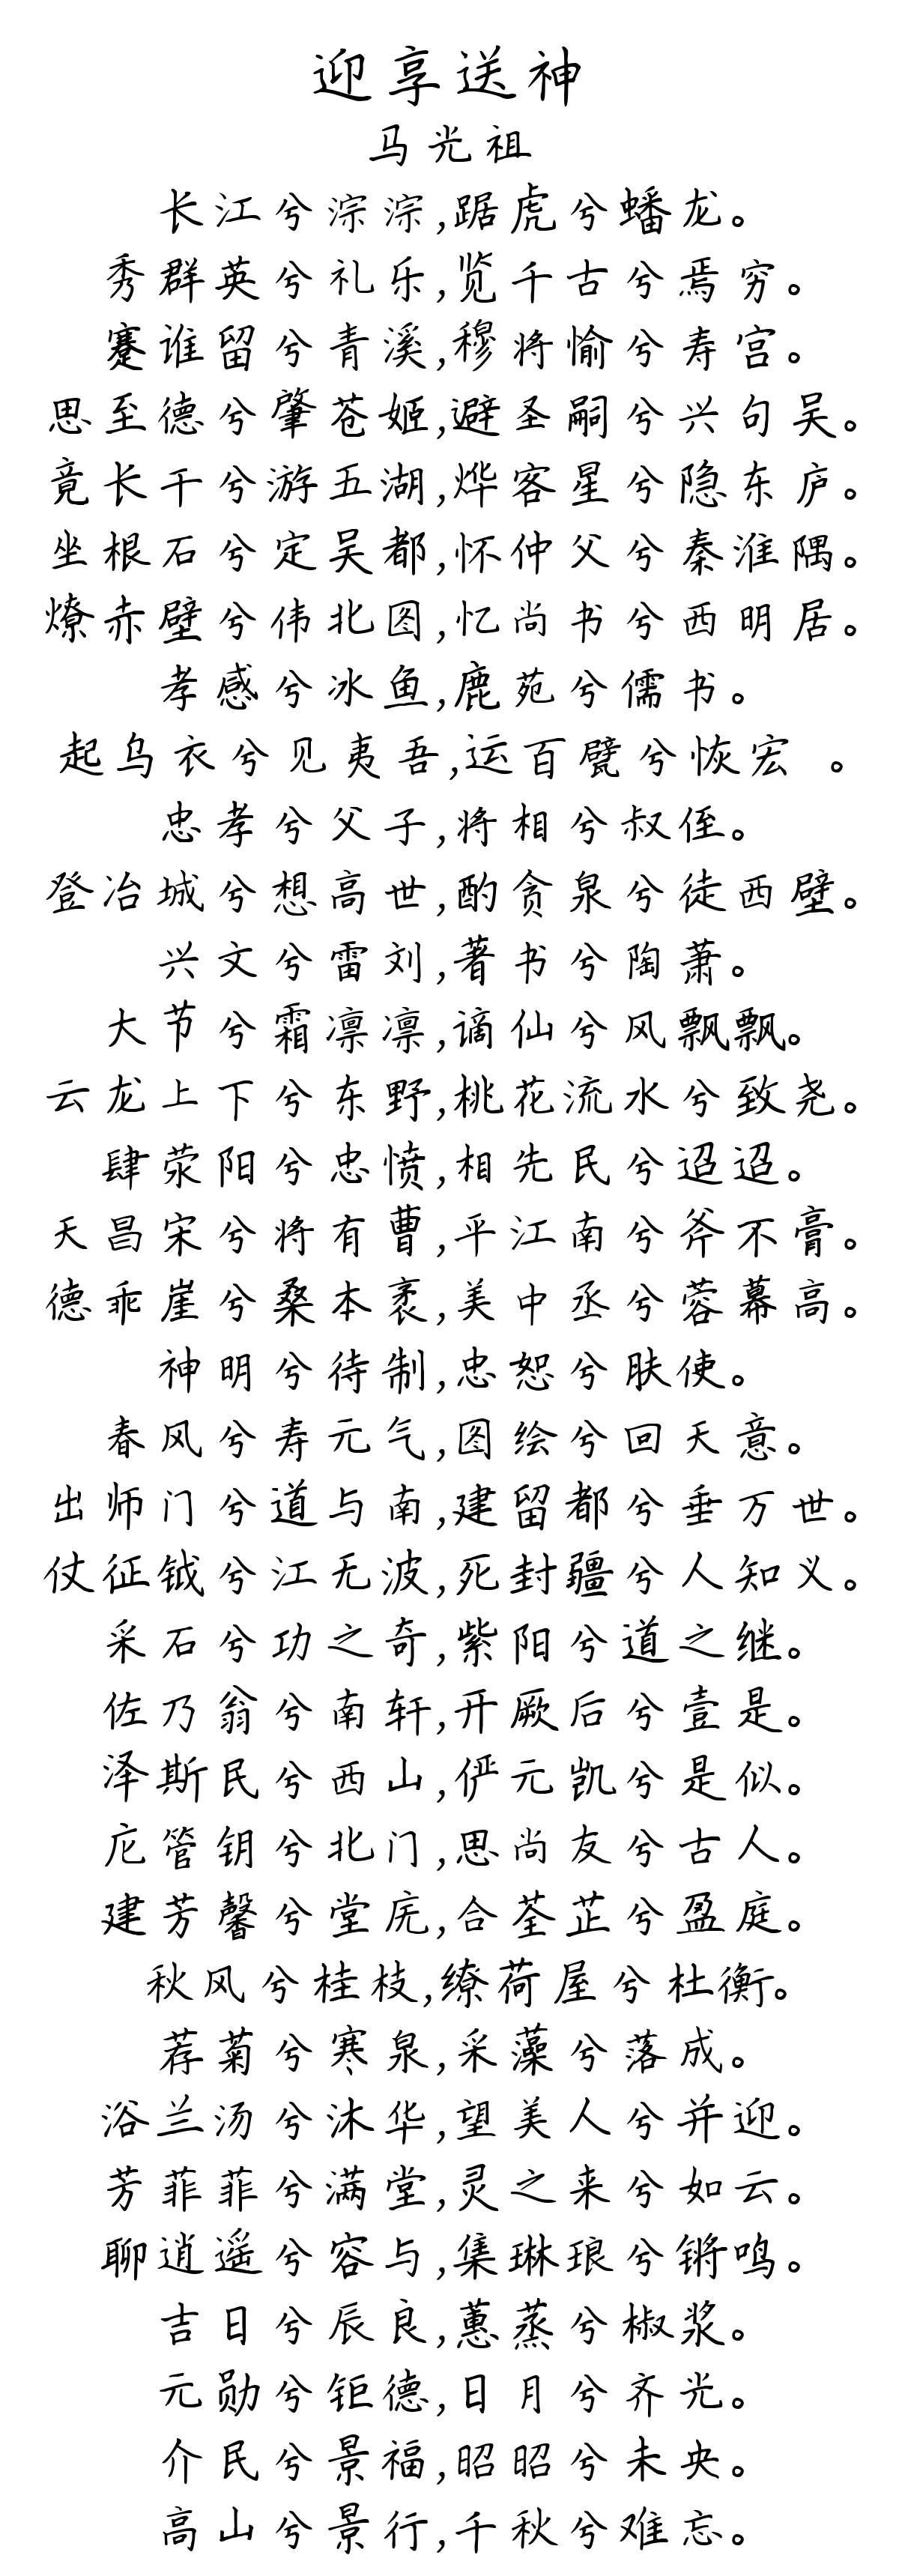 迎享送神
马光祖
长江兮淙淙,踞虎兮蟠龙。
秀群英兮礼乐,览千古兮焉穷。
蹇谁留兮青溪,穆将愉兮寿宫。
思至德兮肇苍姬,避圣嗣兮兴句吴。
竟长干兮游五湖,烨客星兮隐东庐。
坐根石兮定吴都,怀仲父兮秦淮隅。
燎赤壁兮伟北图,忆尚书兮西明居。
孝感兮冰鱼,鹿苑兮儒书。
起乌衣兮见夷吾,运百甓兮恢宏 。
忠孝兮父子,将相兮叔侄。
登冶城兮想高世,酌贪泉兮徒西壁。
兴文兮雷刘,著书兮陶萧。
大节兮霜凛凛,谪仙兮风飘飘。
云龙上下兮东野,桃花流水兮致尧。
肆荥阳兮忠愤,相先民兮迢迢。
天昌宋兮将有曹,平江南兮斧不膏。
德乖崖兮桑本袤,美中丞兮蓉幕高。
神明兮待制,忠恕兮肤使。
春风兮寿元气,图绘兮回天意。
出师门兮道与南,建留都兮垂万世。
仗征钺兮江无波,死封疆兮人知义。
采石兮功之奇,紫阳兮道之继。
佐乃翁兮南轩,开厥后兮壹是。
泽斯民兮西山,俨元凯兮是似。
庀管钥兮北门,思尚友兮古人。
建芳馨兮堂庑,合荃芷兮盈庭。
秋风兮桂枝,缭荷屋兮杜衡。
荐菊兮寒泉,采藻兮落成。
浴兰汤兮沐华,望美人兮并迎。
芳菲菲兮满堂,灵之来兮如云。
聊逍遥兮容与,集琳琅兮锵鸣。
吉日兮辰良,蕙蒸兮椒浆。
元勋兮钜德,日月兮齐光。
介民兮景福,昭昭兮未央。
高山兮景行,千秋兮难忘。